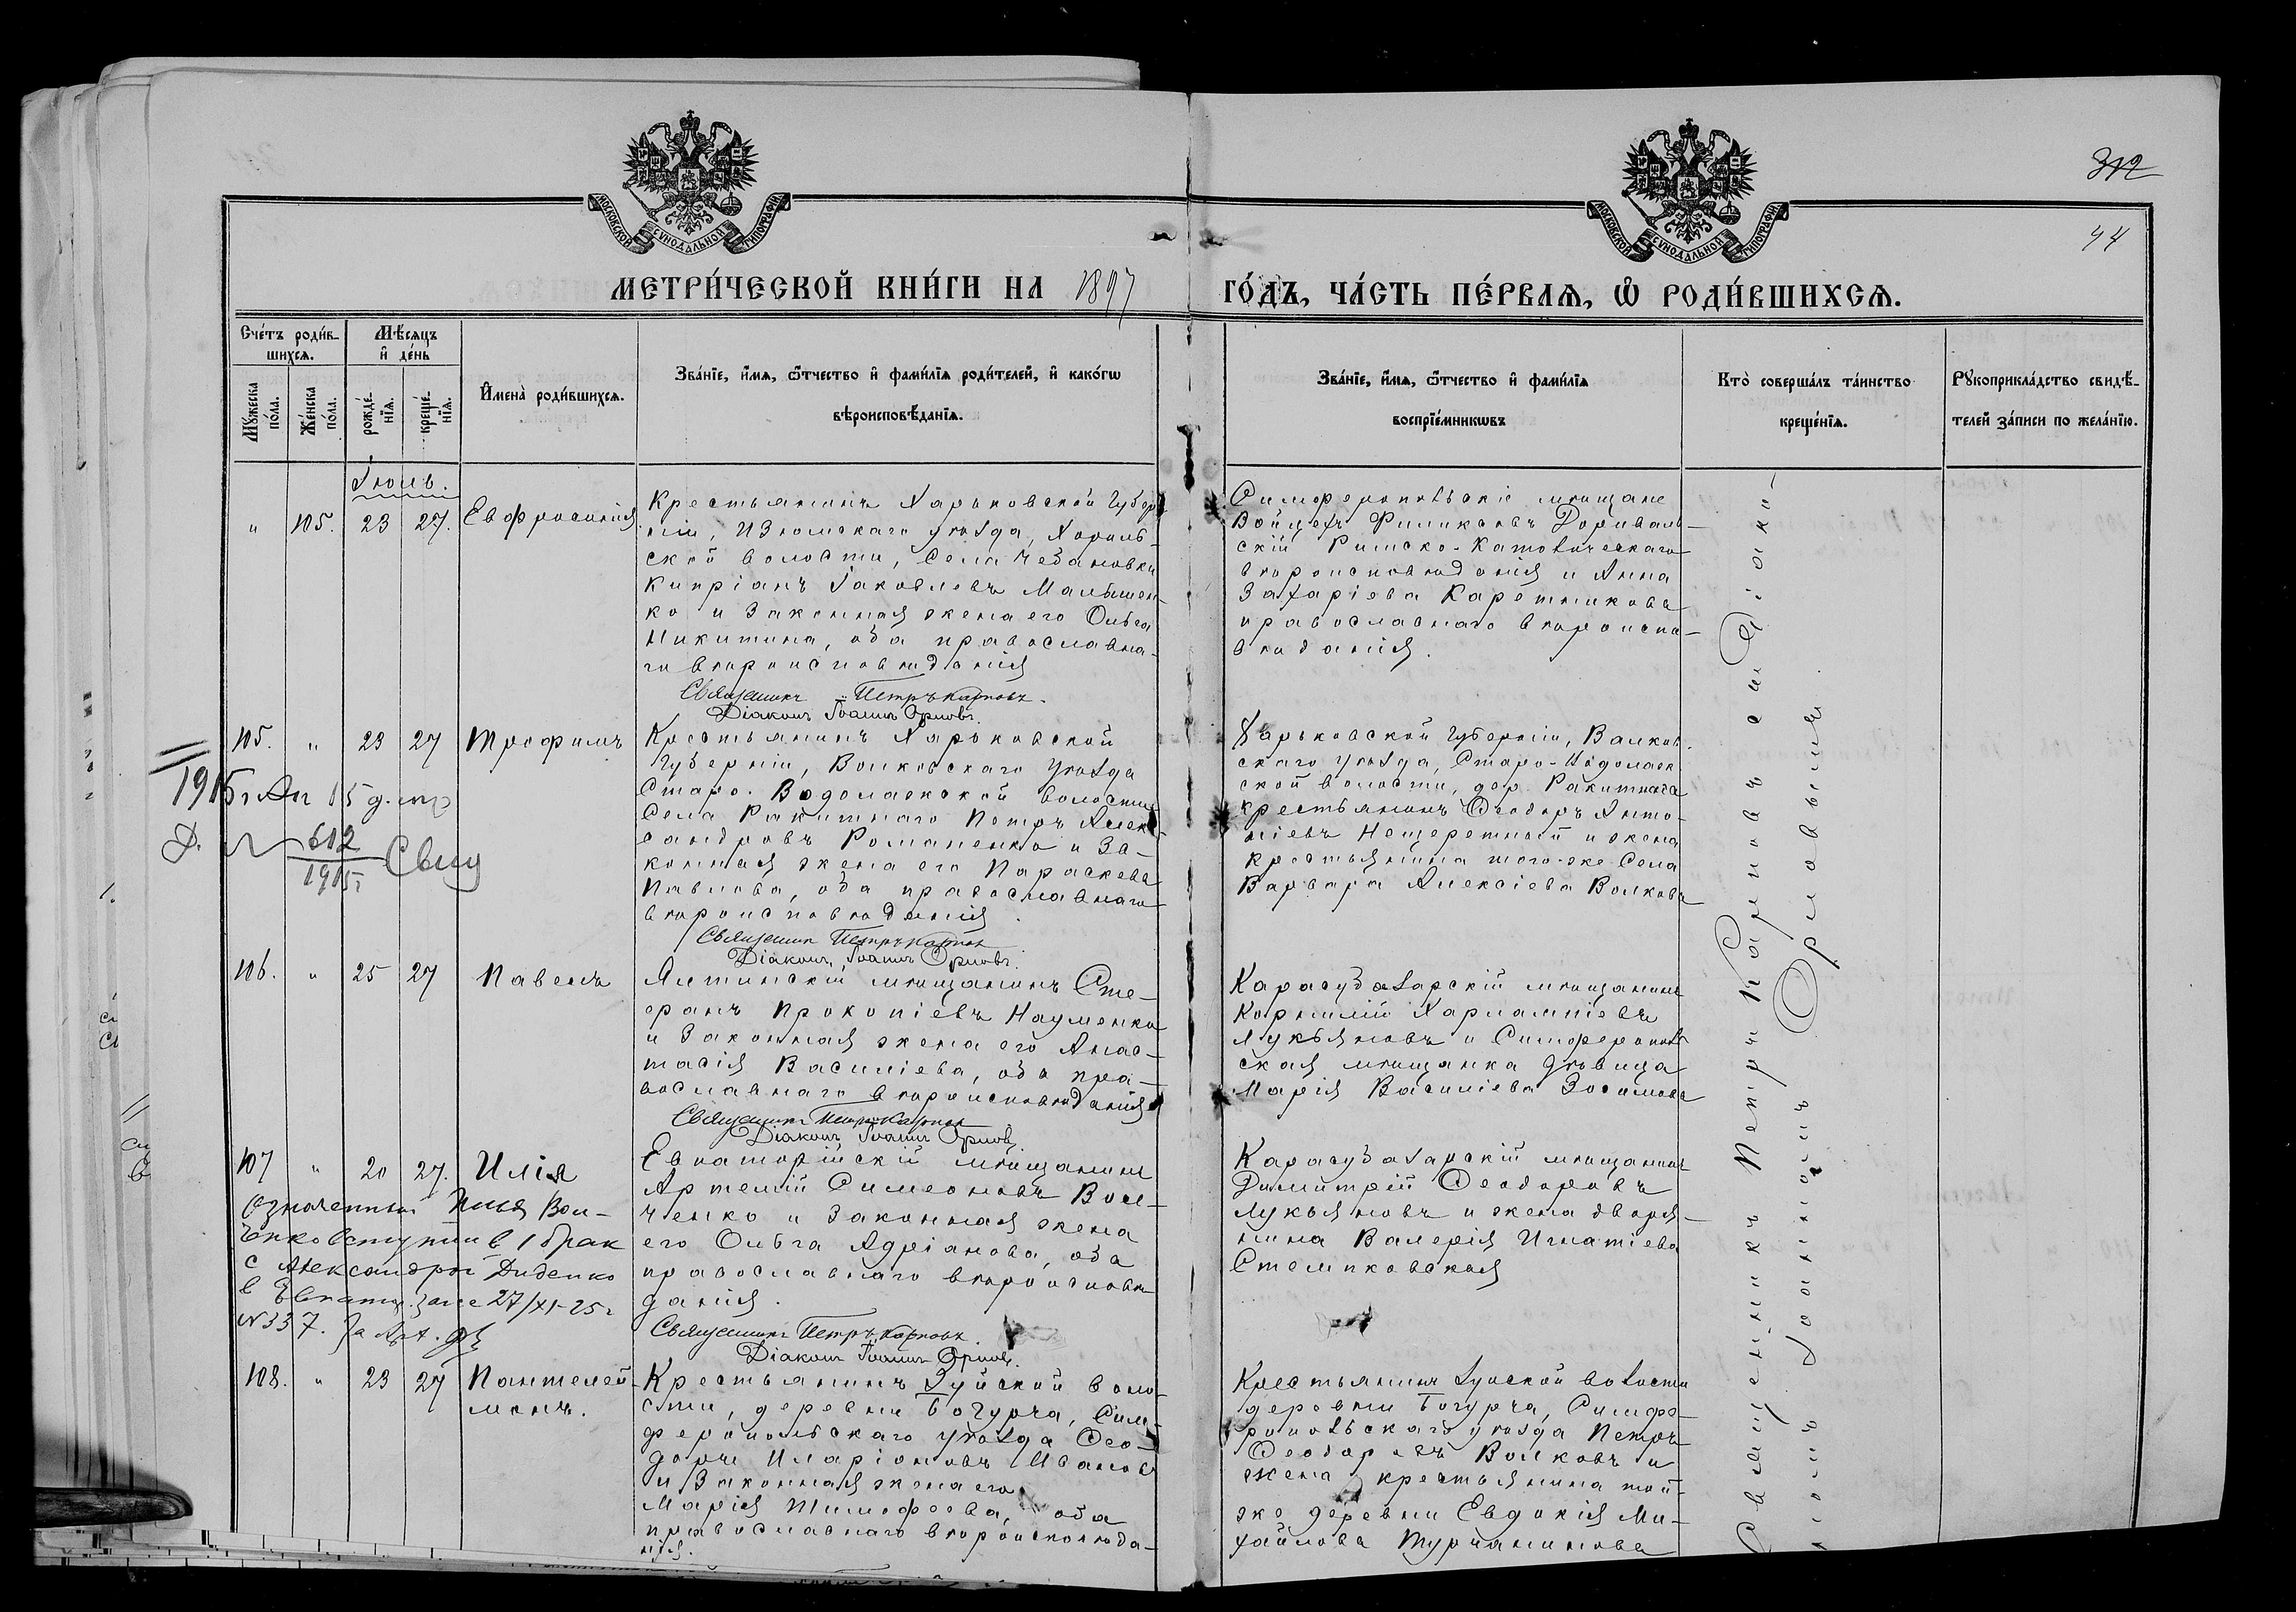 МОСКОВСКОЙ СУНОДАЛЬНОЙ ТИПОГРАФІИ
МОСКОВСКОЙ СУНОДАЛЬНОЙ ТИПОГРАФІИ
312
44
МЕТРИ́ЧЕСКОЙ КНИ́ГИ НА 1897
ГО́ДЪ, ЧА́СТЬ ПЕ́РВАЯ, Ѡ҆ РОДИ́ВШИХСЯ.
Сче́тъ роди́в-
шихся.
Мѣ́сяцъ
и҆ де́нь
Му́жеска
по́ла.
Же́нска
по́ла.
рожде́-
нїя.
креще́-
нїя.
И҆мена̀ роди́вшихся.
Зва́нїе, и҆́мя, ѻ҆́тчество и҆ фами́лїя роди́телей, и҆ како́гѡ
вѣроисповѣ́данїя.
Зва́нїе, и҆́мя, ѻ҆́тчество и҆ фами́лїя
воспрїе́мникѡвъ
Кто̀ соверша́лъ та́инство
креще́нїя.
Рꙋкоприкла́дство свидѣ́-
телей за́писи по жела́нїю.
Іюль.
" 105. 23 27. Евфросинія
Крестьянинъ Харьковской Губер
ніи, Изюмскаго уѣзда,
ской волости, Села Чепановки
Кипріанъ Іаковлевъ Малышен-
ко и законная жена его Ольга
Никитина, оба православна-
го вѣроисповѣданія
Священникъ Петръ Карповъ.
Діаконъ Іоаннъ Орловъ.
Симферопольскіе мѣщане
Войцехъ Филиксовъ
скій Римско-Католическаго
вѣроисповѣданія и Анна
Захаріева Каретникова
православнаго вѣроиспо-
вѣданія.
105. " 23 27 Трофимъ
Крестьянинъ Харьковской
Губерніи, Волковскаго Уѣзда
Старо-Водолажской волости
Села Ракитнаго Петръ Алек-
сандровъ Романенко и За-
конная жена его Параскева
Павлова, оба православнаго
вѣроисповѣданія
Священникъ Петръ Карповъ
Діаконъ Іоаннъ Орловъ.
Харьковской Губерніи, Валков.
скаго Уѣзда, Старо-Водолаж
ской волости, дер. Ракитнаго
крестьянинъ Ѳеодоръ Анто-
ніевъ Нещеретный и жена
крестьянина того-же Села
Варвара Алексіева Волкова
1915 г. Ап 15 д.
612
1915
106. " 25 27 Павелъ
Ялтинскій мѣщанинъ Сте-
фанъ Прокопіевъ Науменко
и законная жена его Анас-
тасія Василіева, оба пра-
вославнаго вѣроисповѣданія
Священникъ Петръ Карповъ
Діаконъ Іоаннъ Орловъ
Карасубазарскій мѣщанинъ
Корнилій Харлампіевъ
Лукьяновъ и Симферополь
ская мѣщанка дѣвица
Марія Василіева Зосимова
107 " 20 27. Илія
Евпаторійскій мѣщанинъ
Артемій Симеоновъ Вол-
ченко и законная жена
его Ольга Адріанова, оба
православнаго вѣроисповѣ
данія.
Священникъ Петръ Карповъ.
Діаконъ Іоаннъ Орловъ.
Карасубазарскій мѣщанинъ
Димитрій Ѳеодоровъ
Лукьяновъ и жена дворя-
нина Валерія Игнатіева
Стемпковская
Означенный Илья Вол-
ченко вступил в 1 брак
с Александрой Диденко
в Евпатор. загсе 27/XI-25 г
№ 337.
108. " 23 27 Пантелей-
монъ.
Крестьянинъ Зуйской воло-
сти, деревни Богурча, Сим-
феропольскаго уѣзда Ѳео-
доръ Иларіоновъ Ивановъ
и законная жена его
Марія Тимофеева, оба
православнаго вѣроисповѣда-
нія.
Крестьянинъ Зуйской волости
деревни Богурча, Симфе-
ропольскаго уѣзда Петръ
Ѳеодоровъ Волковъ и
жена крестьянина той-
же деревни Евдокія Ми-
хайлова Турчанинова
Священникъ Петръ Карповъ съ Діако-
номъ Іоанномъ Орловымъ.